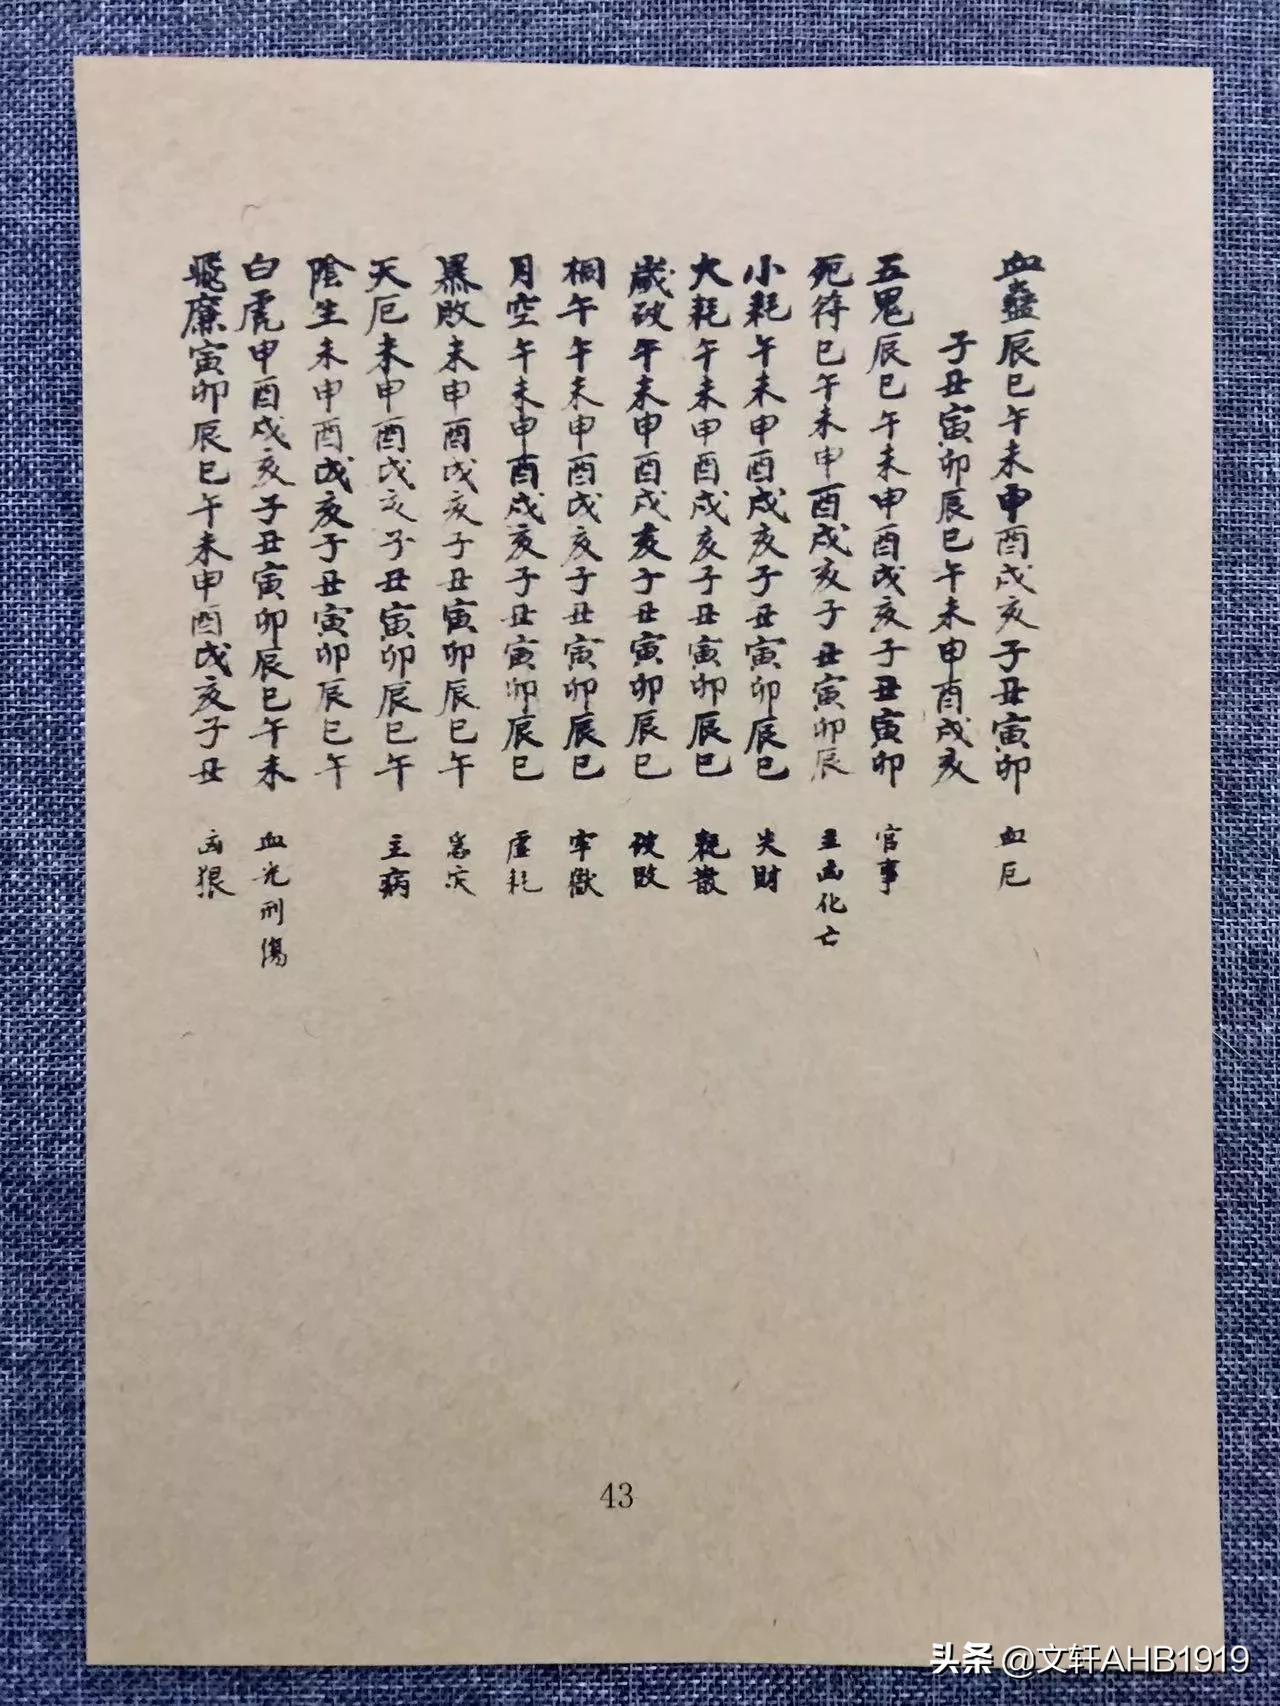 血蠱辰巳午未申酉戌亥子丑寅卯 血厄
子丑寅卯辰巳午未申酉戌亥
五鬼辰巳午未申酉戌亥子丑寅卯 官事
死符巳午未申酉戌亥子丑寅卯辰 主凶化亡
小耗午未申酉戌亥子丑寅卯辰巳 失財
大耗午未申酉戌亥子丑寅卯辰巳 耗散
歲破午未申酉戌亥子丑寅卯辰巳 破敗
桐午午未申酉戌亥子丑寅卯辰巳 牢獄
月空午未申酉戌亥子丑寅卯辰巳 虛耗
暴敗未申酉戌亥子丑寅卯辰巳午 急灾
天厄未申酉戌亥子丑寅卯辰巳午 主病
陰生未申酉戌亥子丑寅卯辰巳午
白虎申酉戌亥子丑寅卯辰巳午未 血光刑傷
飛廉寅卯辰巳午未申酉戌亥子丑 凶狠
43
头条 @文轩AHB1919